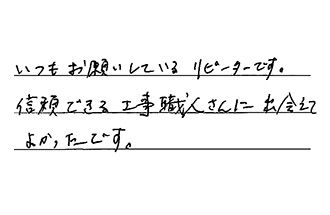 いつもお願いしているリピーターです。
信頼できる工事職人さんに出会えて
よかったです。